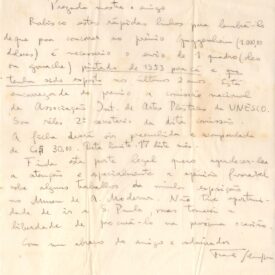 Prezado mestre e amigo
Rabisco estas rápidas linhas para lembrá-lo
de que para concorrer ao prêmio guggenheim (1.000,00
dólares) é necessário o envio de 1 quadro (óleo
ou guache) pintado de 1953 para cá e que
tenha sido exposto nos últimos 2 anos. Está
encarregada do prêmio a comissão nacional
da Associação Int. de Artes Plásticas da UNESCO.
Sou o 2º secretário da dita comissão.
A ficha deverá ser preenchida e acompanhada
de Cr$ 30,00. Data limite: 15 dêste mês.
Finda esta parte legal quero agradecer-lhe
a atenção e especialmente a opinião favorável
sôbre alguns trabalhos da minha exposição
no Museu de A. Moderna. Não tive oportuni-
dade de ir a S. Paulo, mas tomarei a
liberdade de procurá-lo na próxima ocasião.
Com um abraço do amigo e admirador